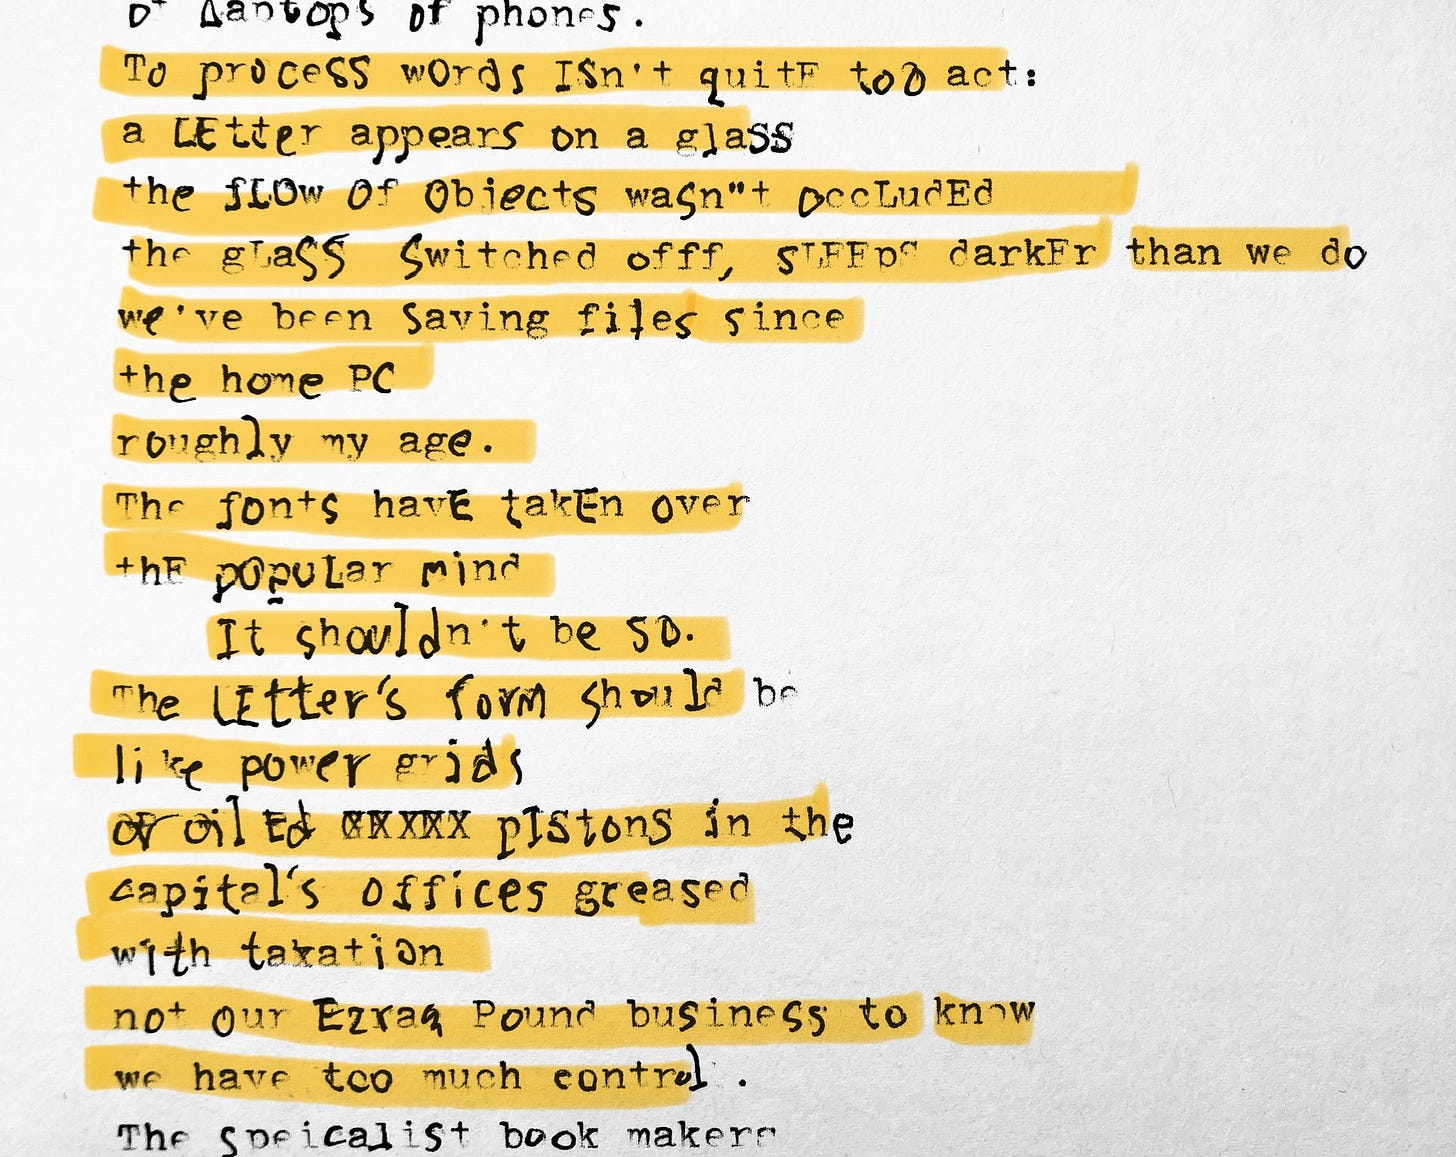 of Laptops of phones.
To process words ISn't quitE too act:
a LEtter appears on a glaSS
the fLOw Of Objects waSn"t OccLudEd
the gLaSS Switched offf, sLEEps darkEr than we do
we've been Saving files since
the home PC
roughly my age.
The fonts havE takEn over
thE pOpuLar mind
It shouldn't be SO.
The LEtter's form should be
like power grids
or oilEd XXXXX pIstonS in the
capital's offices greased
with taxation
not our Ezraa Pound business to know
we have too much control .
The speicaliSt book makers